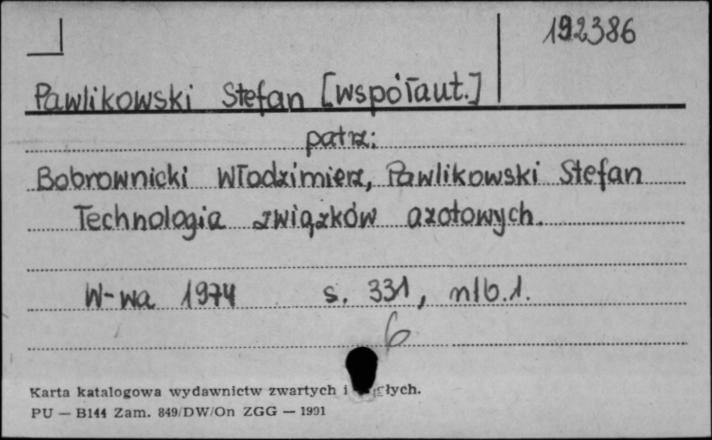 192386
Pawlikowski Stefan [współaut.]
patrz:
Bobrownicki Włodzimierz, Pawlikowski Stefan
Technologia związków azotowych.
W-wa 1974 s. 331, nlb.1.
6
Karta katalogowa wydawnictw zwartych i
PU — B144 Zam. 849/DW/On ZGG — 1991